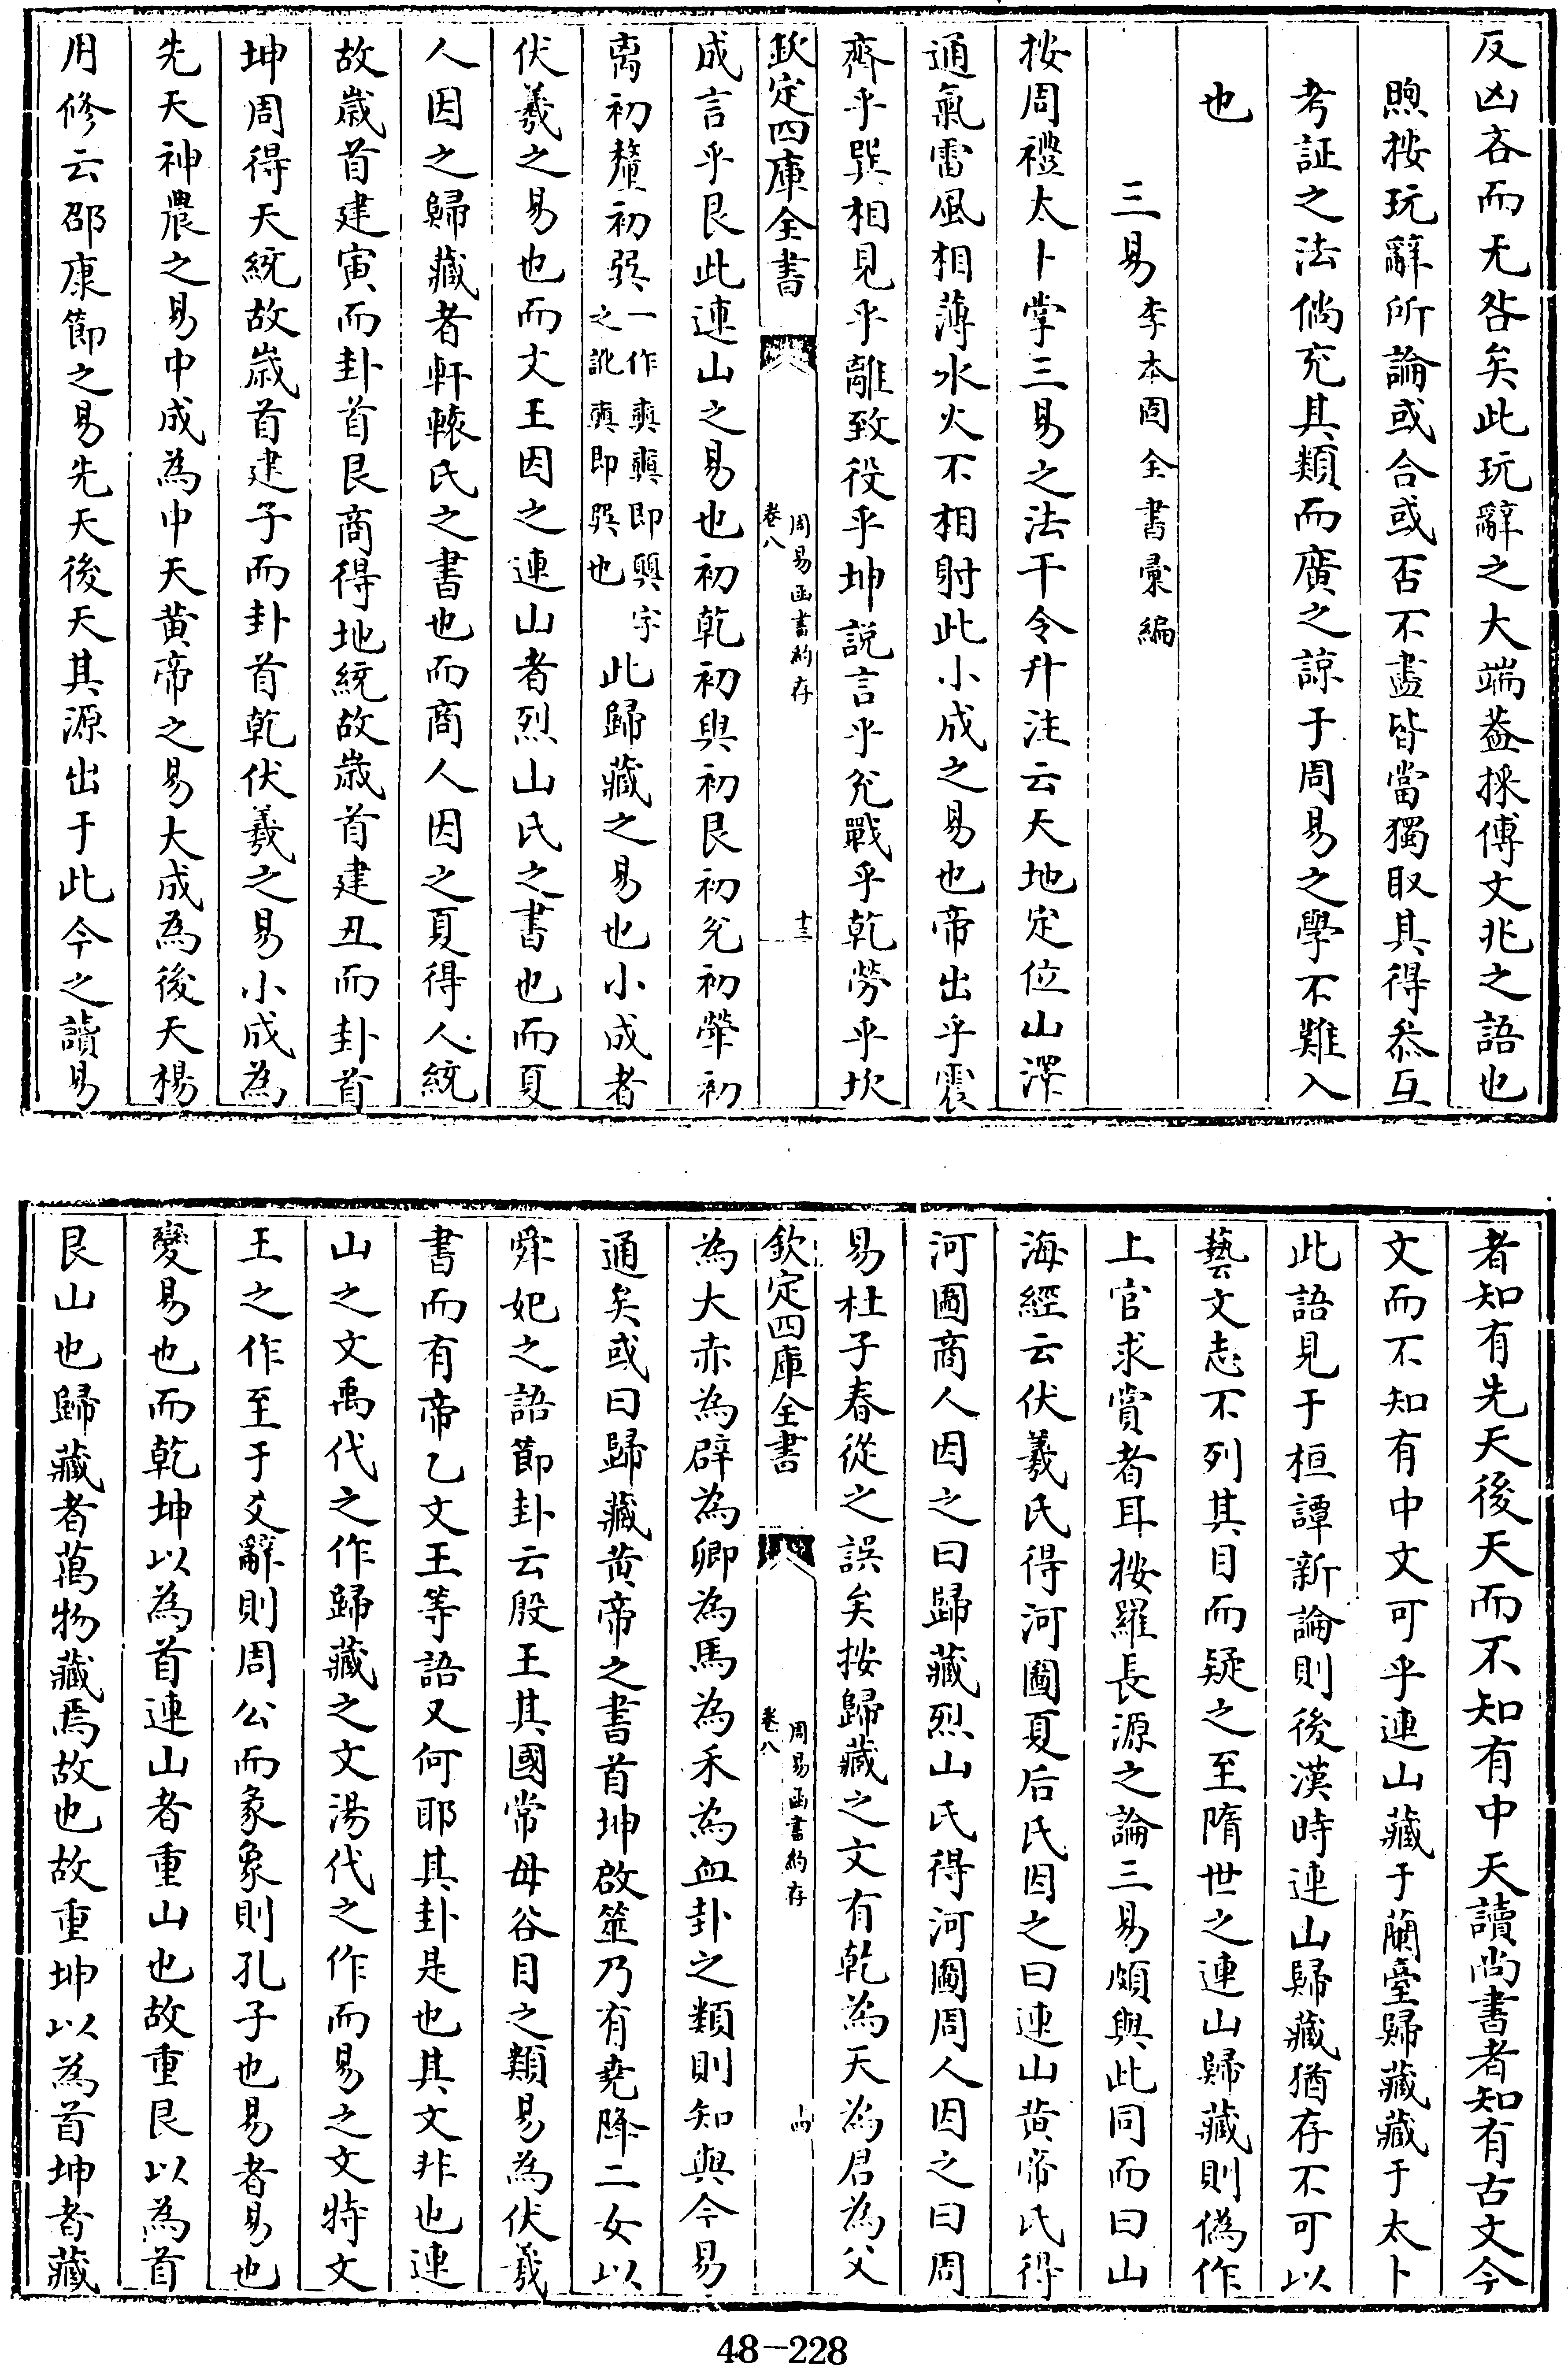 反凶吝而无咎矣此玩辭之大端葢採傅文兆之語也
煦按玩辭所論或合或否不盡皆當獨取其得叅互
考証之法倘充其類而廣之諒于周易之學不難入
也
三易李本固全書彚編
按周禮太卜掌三易之法干令升注云天地定位山澤
通氣雷風相薄水火不相射此小成之易也帝出乎震
齊乎巽相見乎離致役乎坤説言乎兊戰乎乾勞乎坎
欽定四庫全書
周易函書約存
卷八
十三
成言乎艮此連山之易也初乾初奭初艮初兊初犖初
离初釐初巺一作奭㢲即顨字之訛奭即巽也此歸藏之易也小成者
伏羲之易也而文王因之連山者烈山氏之書也而夏
人因之歸藏者軒轅氏之書也而商人因之夏得人統
故歳首建寅而卦首艮商得地統故歳首建丑而卦首
坤周得天統故歳首建子而卦首乾伏羲之易小成為
先天神農之易中成為中天黄帝之易大成為後天楊
用修云邵康節之易先天後天其源出于此今之讀易
者知有先天後天而不知有中天讀尚書者知有古文今
文而不知有中文可乎連山藏于蘭臺歸藏藏于太卜
此語見于桓譚新論則後漢時連山歸藏猶存不可以
藝文志不列其目而疑之至隋世之連山歸藏則偽作
上官求賞者耳按羅長源之論三易頗與此同而曰山
海經云伏羲氏得河圖夏后氏因之曰連山黄帝氏得
河圖商人因之曰歸藏烈山氏得河圖周人因之曰周
易杜子春從之誤矣按歸藏之文有乾為天為君為父
欽定四庫全書
周易函書約存
卷八
十四
為大赤為辟為卿為馬為禾為血卦之類則知與今易
通矣或曰歸藏黄帝之書首坤啟筮乃有堯降二女以
舜妃之語節卦云殷王其國常毋谷目之類易為伏羲
書而有帝乙文王等語又何耶其卦是也其文非也連
山之文禹代之作歸藏之文湯代之作而易之文特文
王之作至于爻辭則周公而彖象則孔子也易者易也
變易也而乾坤以為首連山者重山也故重艮以為首
艮山也歸藏者萬物藏焉故也故重坤以為首坤者藏
48-228